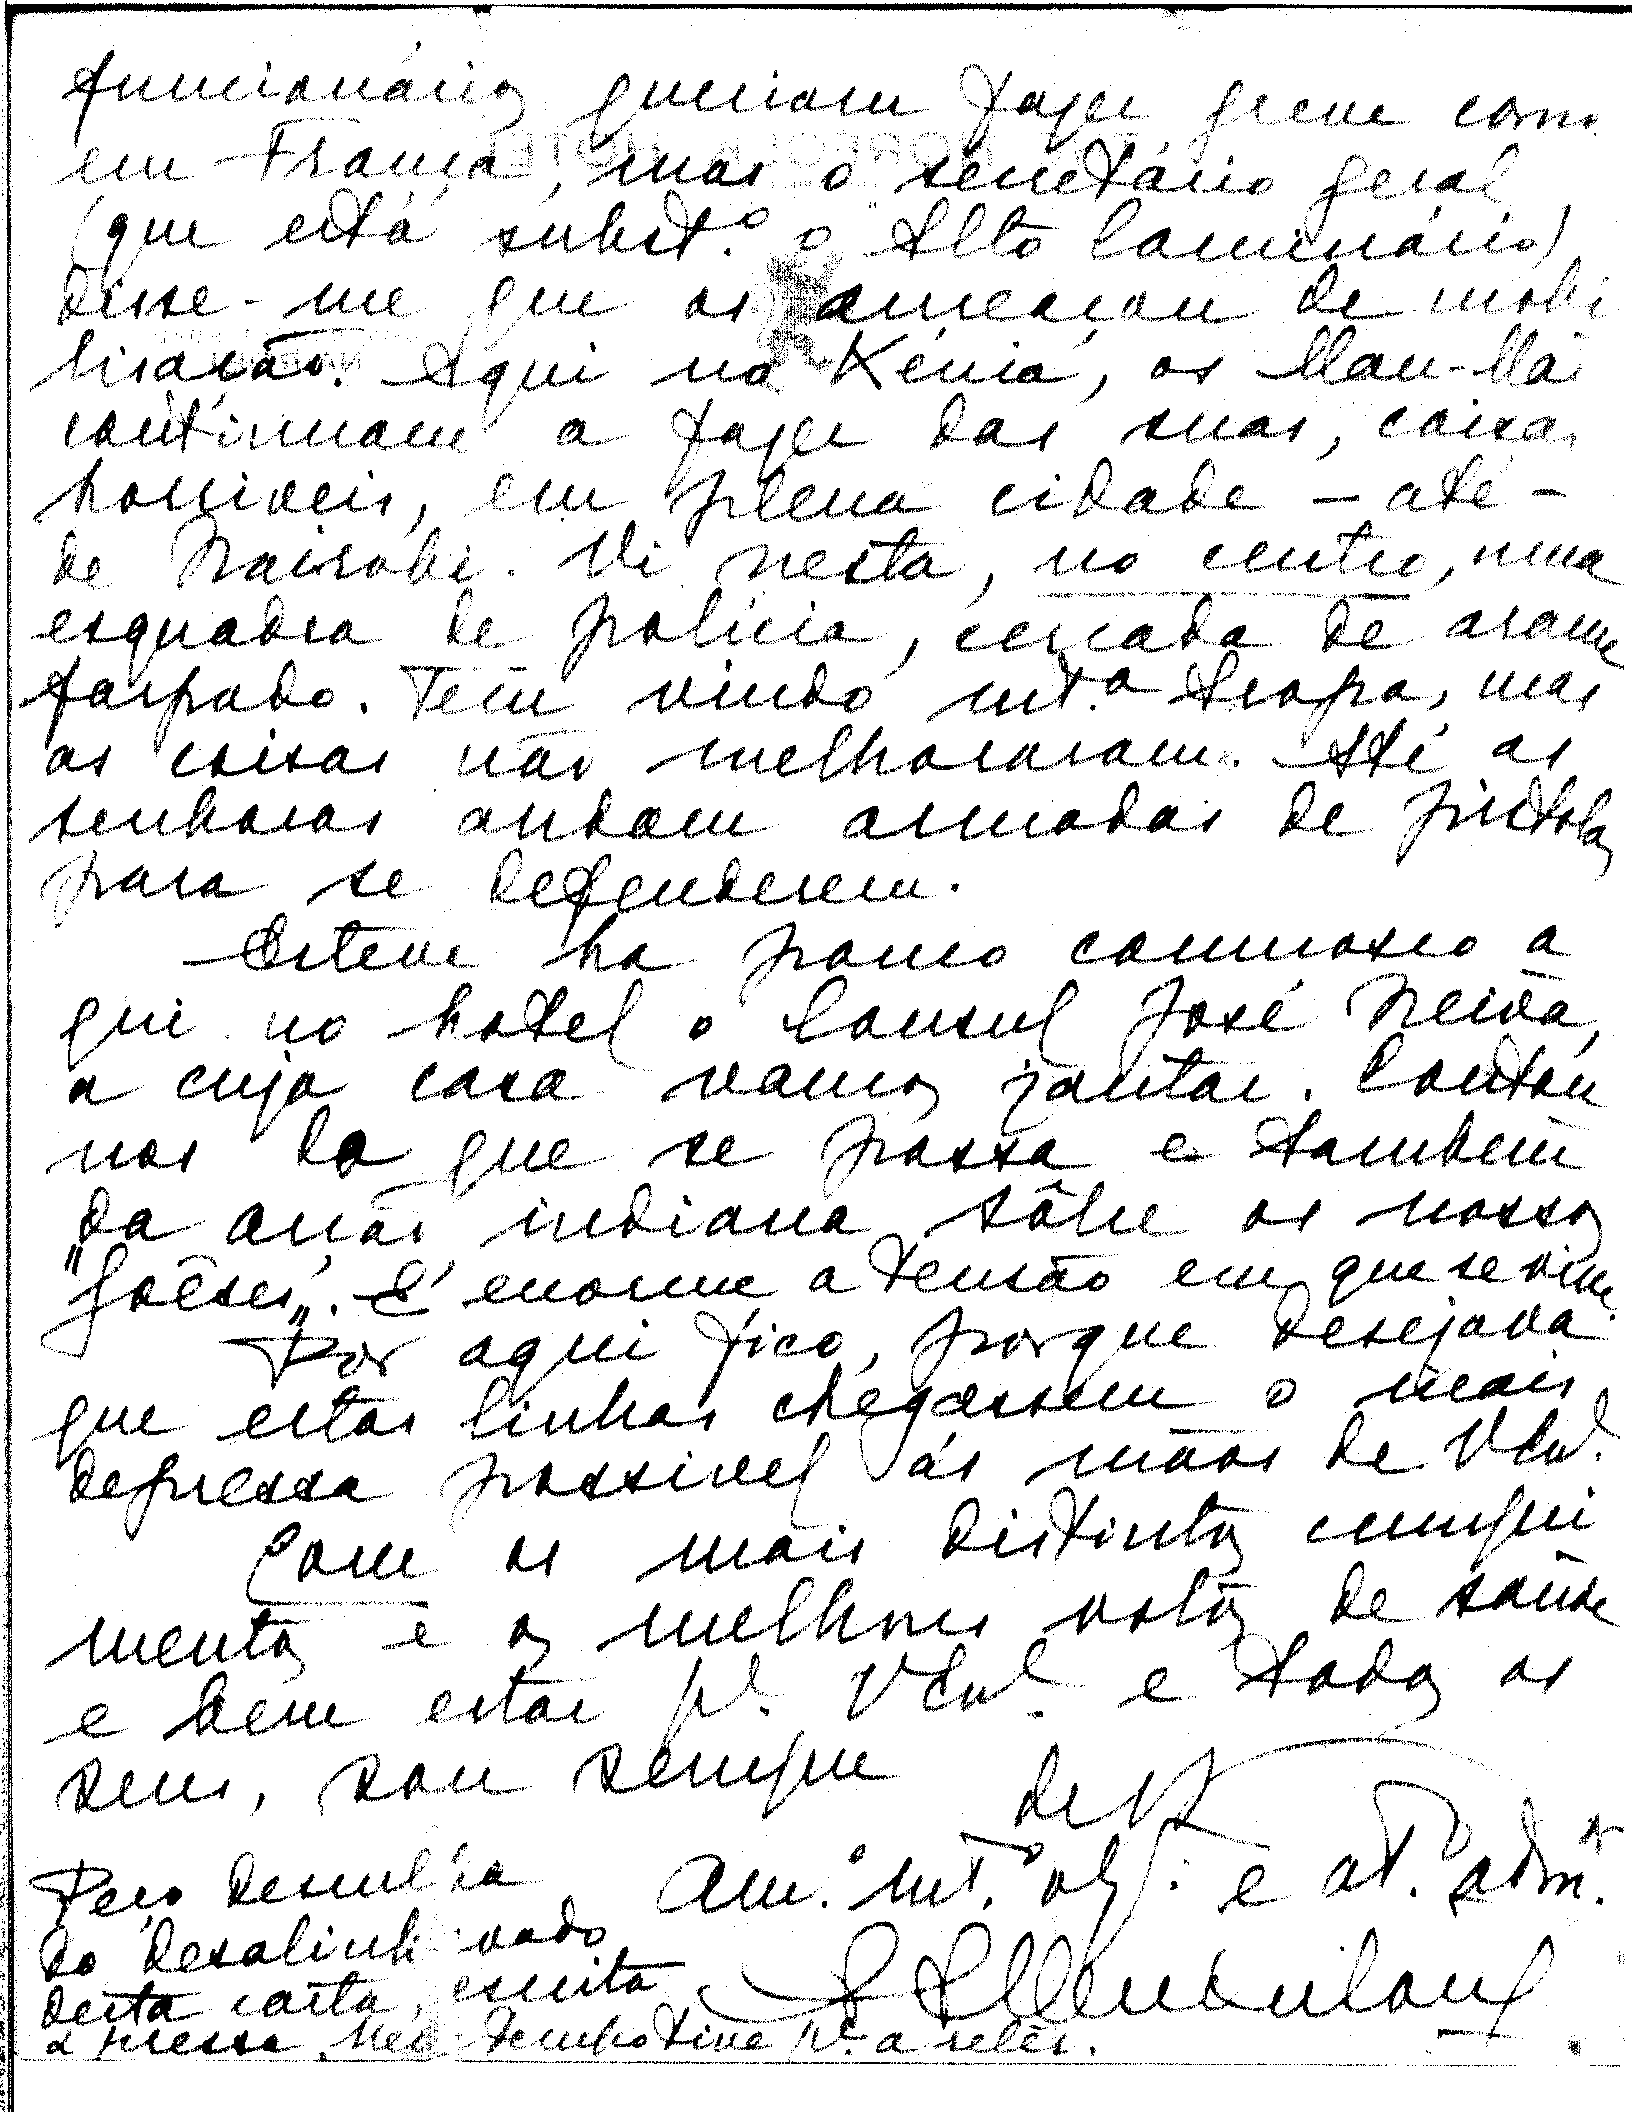 funcionários queriam fazer greve como
em França, mas o secretário geral
(que está subst.º o Alto Comissário)
disse-me que os ameaçou de mobi
lisação. Aqui na Kénia, os Mau-Máo
continuam a fazer das suas, coisas
horriveis, em plena cidade – até –
de Nairobi. Vi nesta, no centro, uma
esquadra de policia, cercada de arame
farpado. Tem vindo mt.ª tropa, mas
as coisas não melhoraram. Até as
senhoras andam armadas de pistolas
para se defenderem.
Esteve ha pouco comnosco a
qui no hotel o Consul José Neiva,
a cuja casa vamos jantar. Contou
nos do que se passa e tambem
da acção indiana sôbre os nossos
"Goêses". É enorme a tensão em que se vive.
Por aqui fico, porque desejava
que estas linhas chegassem o mais
depressa possivel ás mãos de V Exª.
Com os mais distintos cumpri
mentos e os melhores votos de saúde
e bem estar pª. V Exª. e todos os
seus, sou sempre
de V.
Am.º mt.º obg.º e at.º adm.ºr
Peço desculpa
do desalinhavado
desta carta, escrita
á pressa. Não tenho time pª. a reler.